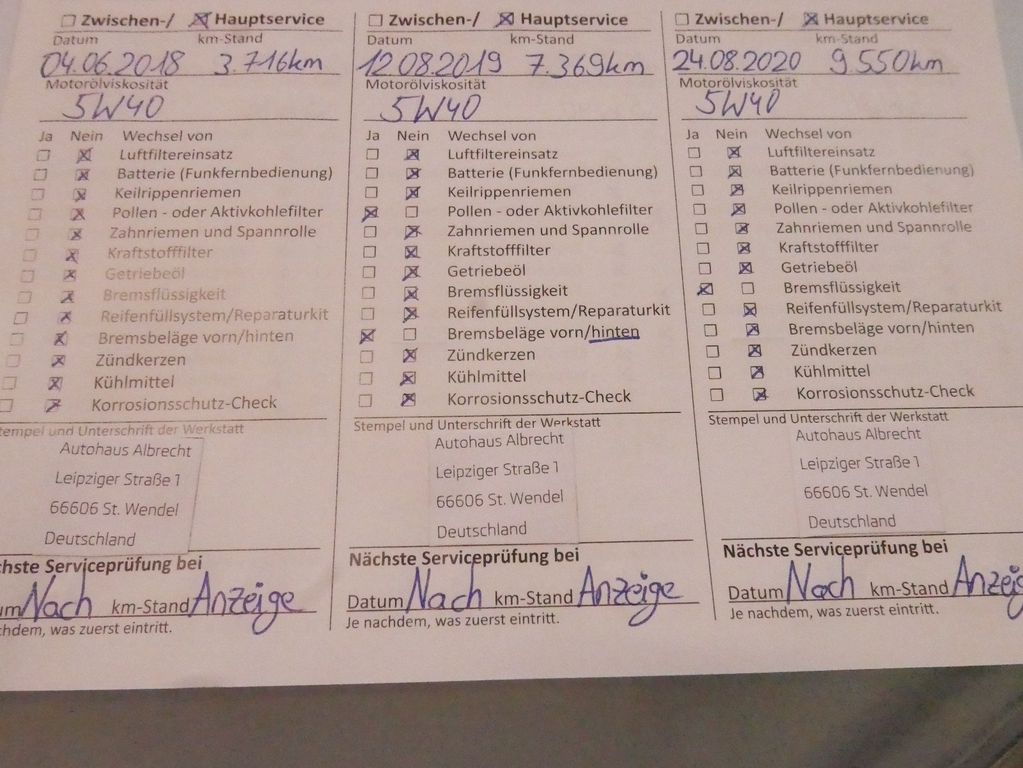 Zwischen-/ Hauptservice
Datum km-Stand
04.06.2018 3.716km
Motorölviskosität
5W40
Ja Nein Wechsel von
Luftfiltereinsatz
Batterie (Funkfernbedienung)
Keilrippenriemen
Pollen - oder Aktivkohlefilter
Zahnriemen und Spannrolle
Kraftstofffilter
Getriebeöl
Bremsflüssigkeit
Reifenfüllsystem/Reparaturkit
Bremsbeläge vorn/hinten
Zündkerzen
Kühlmittel
Korrosionsschutz-Check
tempel und Unterschrift der Werkstatt
Autohaus Albrecht
Leipziger Straße 1
66606 St. Wendel
Deutschland
chste Serviceprüfung bei
um Nach km-Stand Anzeige
chdem, was zuerst eintritt.
Zwischen-/ Hauptservice
Datum km-Stand
12.08.2019 7.369km
Motorölviskosität
5W40
Ja Nein Wechsel von
Luftfiltereinsatz
Batterie (Funkfernbedienung)
Keilrippenriemen
Pollen - oder Aktivkohlefilter
Zahnriemen und Spannrolle
Kraftstofffilter
Getriebeöl
Bremsflüssigkeit
Reifenfüllsystem/Reparaturkit
Bremsbeläge vorn/hinten
Zündkerzen
Kühlmittel
Korrosionsschutz-Check
Stempel und Unterschrift der Werkstatt
Autohaus Albrecht
Leipziger Straße 1
66606 St. Wendel
Deutschland
Nächste Serviceprüfung bei
Datum Nach km-Stand Anzeige
Je nachdem, was zuerst eintritt.
Zwischen-/ Hauptservice
Datum km-Stand
24.08.2020 9.550km
Motorölviskosität
5W40
Ja Nein Wechsel von
Luftfiltereinsatz
Batterie (Funkfernbedienung)
Keilrippenriemen
Pollen - oder Aktivkohlefilter
Zahnriemen und Spannrolle
Kraftstofffilter
Getriebeöl
Bremsflüssigkeit
Reifenfüllsystem/Reparaturkit
Bremsbeläge vorn/hinten
Zündkerzen
Kühlmittel
Korrosionsschutz-Check
Stempel und Unterschrift der Werkstatt
Autohaus Albrecht
Leipziger Straße 1
66606 St. Wendel
Deutschland
Nächste Serviceprüfung bei
Datum Nach km-Stand Anzeig
Je nachdem, was zuerst eintritt.